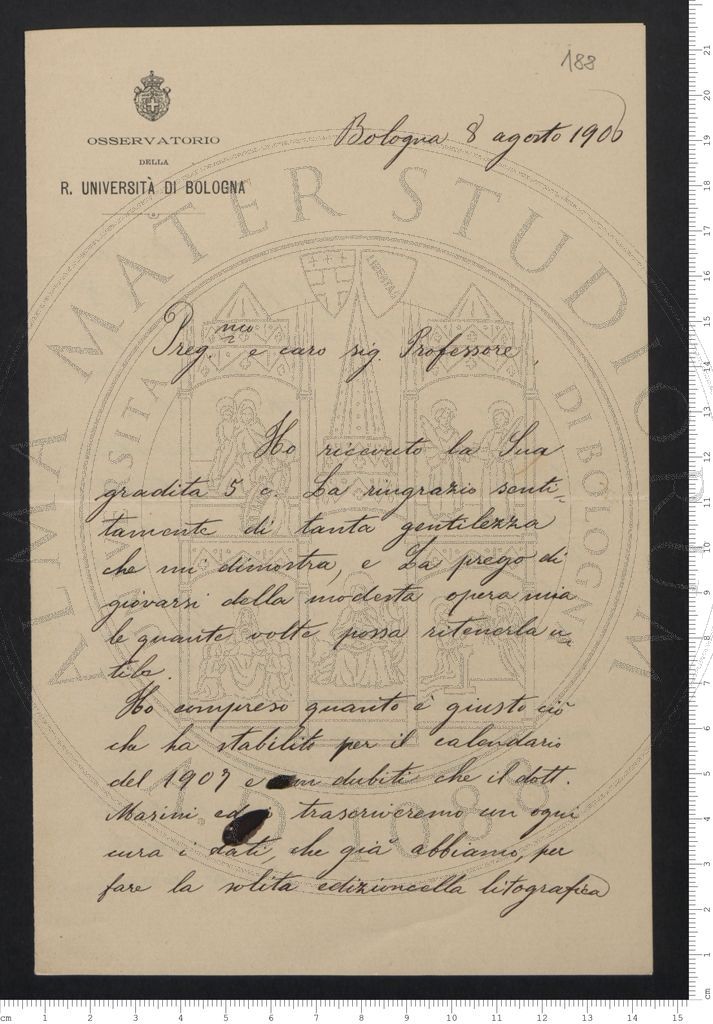 188
OSSERVATORIO
DELLA
R. UNIVERSITÀ DI BOLOGNA
Bologna 8 agosto 1906
Preg.mo e caro sig. Professore,
Ho ricevuto la Sua
gradita 5 c. La ringrazio senti-
tamente di tanta gentilezza
che mi dimostra, e La prego di
giovarsi della modesta opera mia
le quante volte possa ritenerla u
tile.
Ho compreso quanto è giusto ciò
che ha stabilito per il calendario
del 1907 e non dubiti che il dott.
Masini ed io trascriveremo con ogni
cura i dati, che già abbiamo, per
fare la solita edizioncella litografica
ALMA MATER STUDIORUM
UNIVERSITÀ DI BOLOGNA
LIBERTAS
A.D. 1088
cm 1 2 3 4 5 6 7 8 9 10 11 12 13 14 15
21
20
19
18
17
16
15
14
13
12
11
10
9
8
7
6
5
4
3
2
1
cm